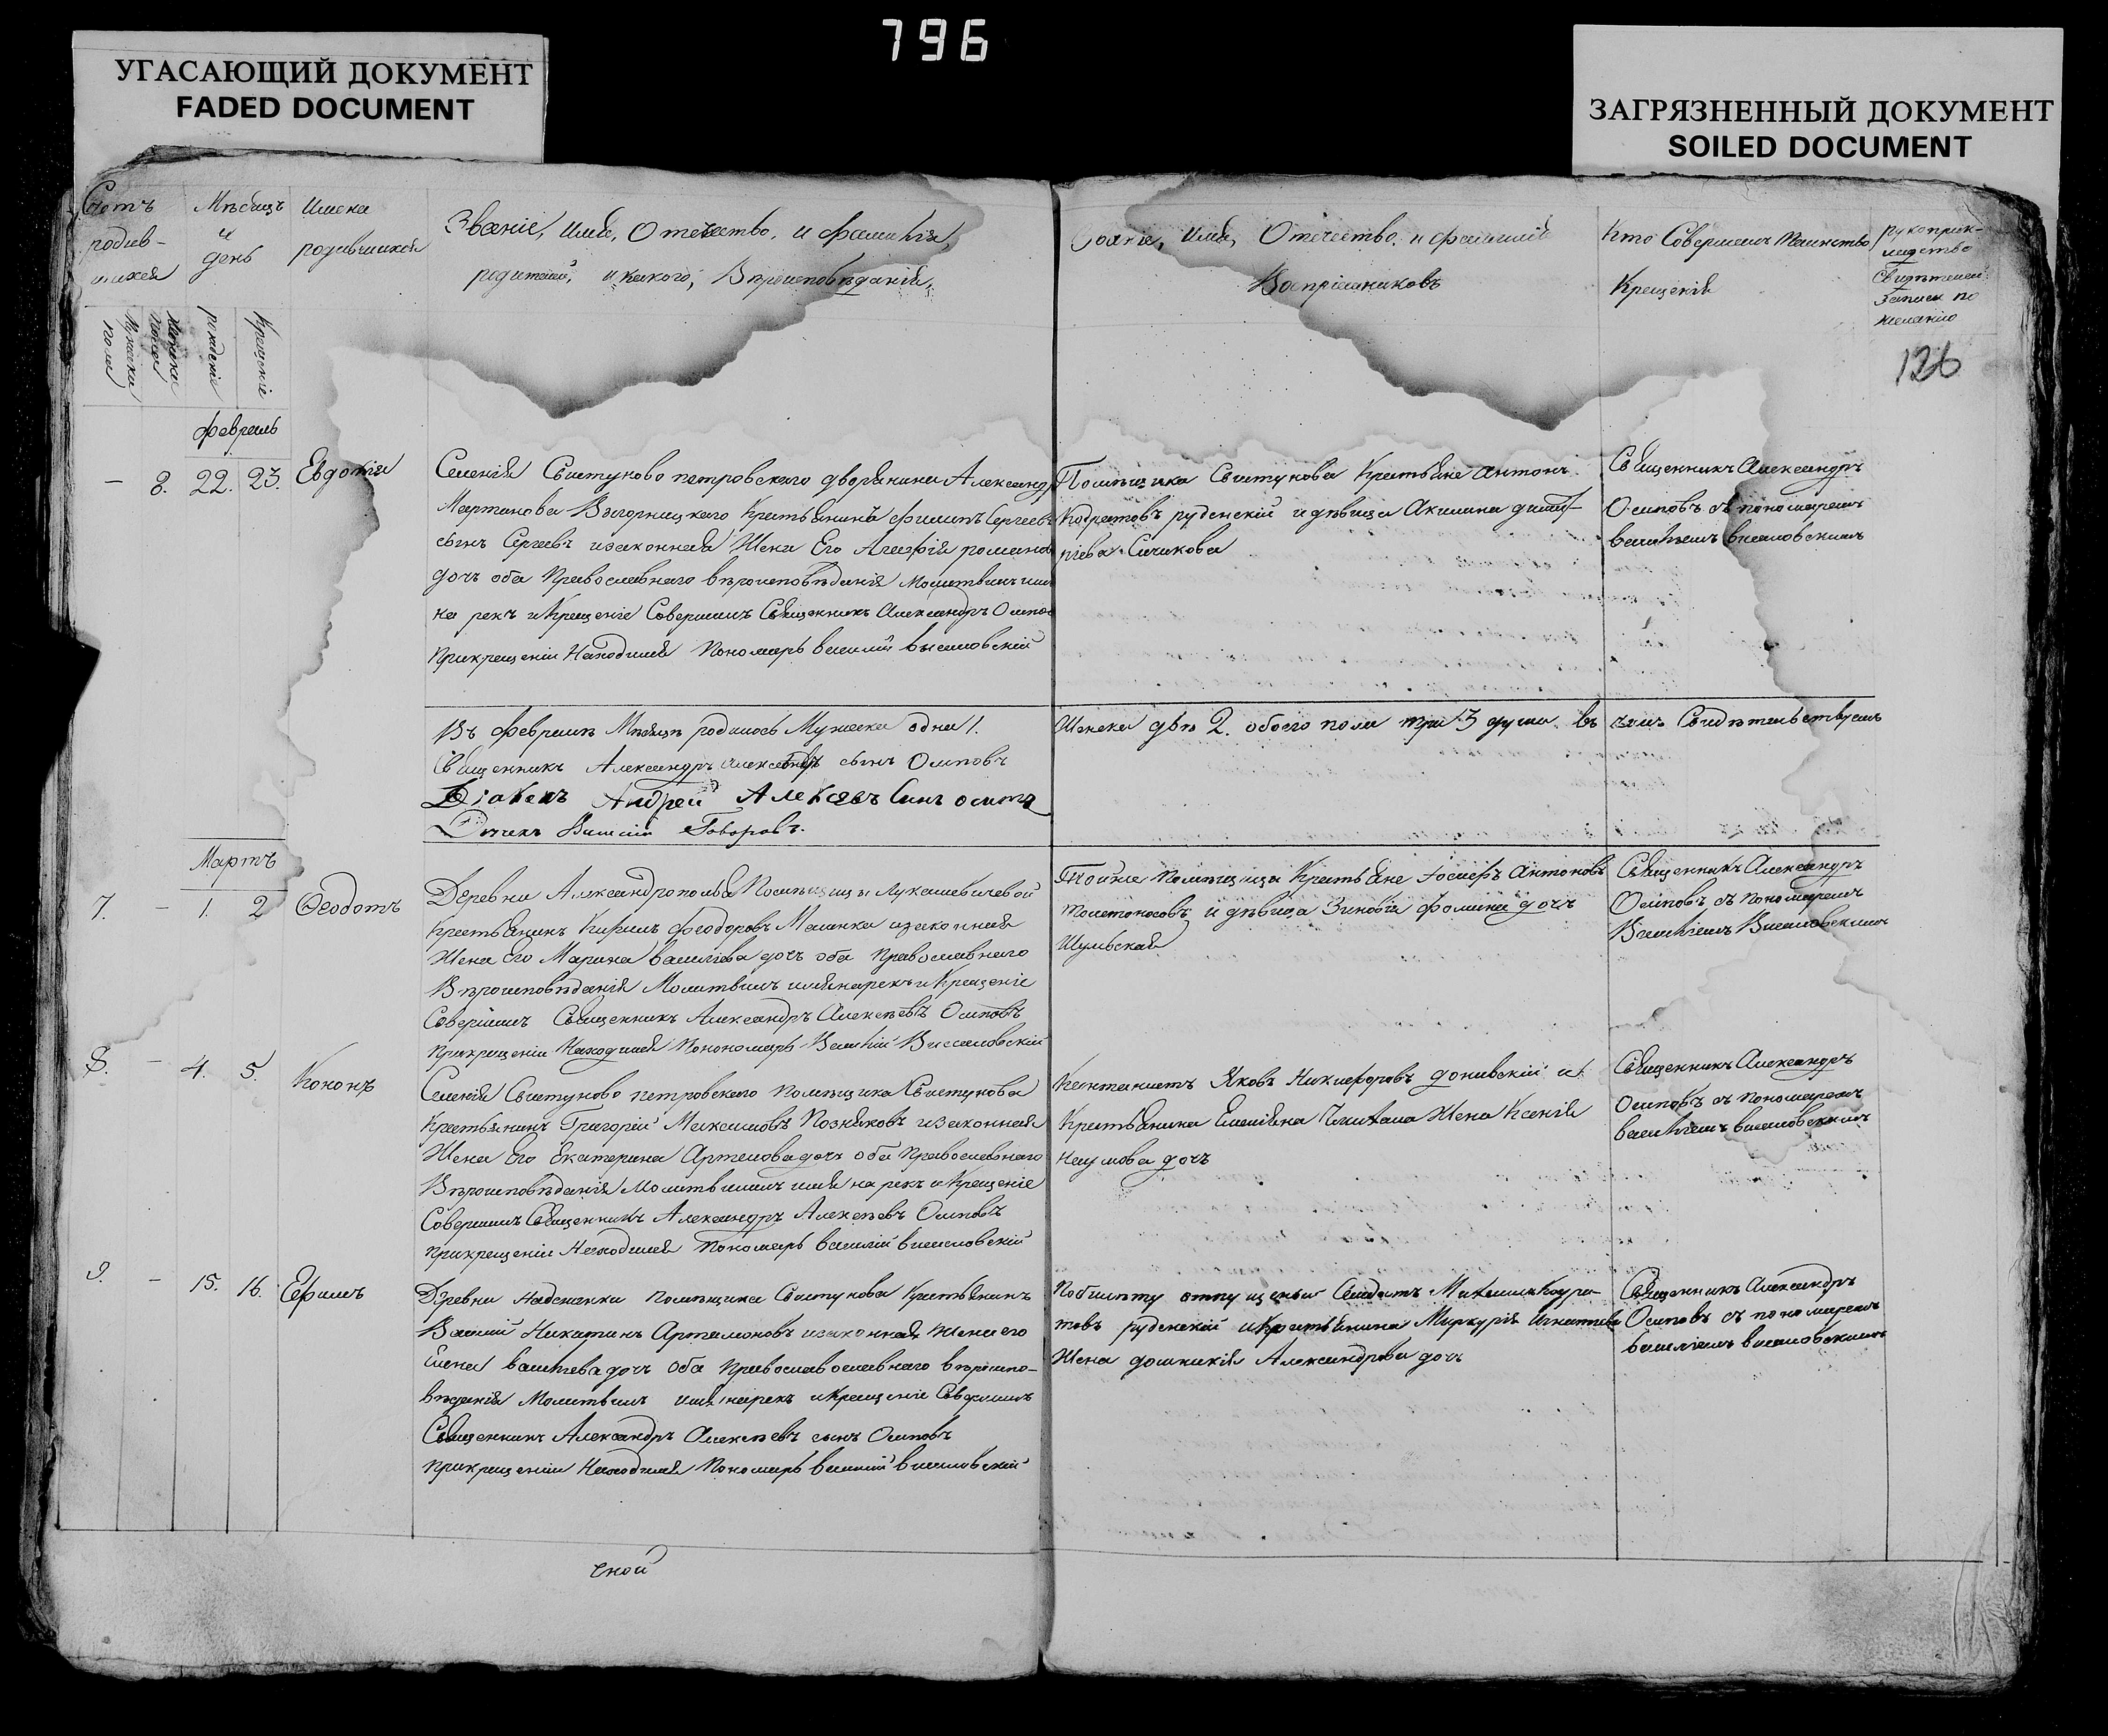 796
УГАСАЮЩИЙ ДОКУМЕНТ
FADED DOCUMENT
ЗАГРЯЗНЕННЫЙ ДОКУМЕНТ
SOILED DOCUMENT
Счотъ родив-шихся
Мѣсяцъ и день
Имена родившихся
Званіе, имя, Отечество, и фамилія,
родителей, и какого, Вѣроисповѣданія,
Отечество, и фамилія
Воспріемниковъ
Кто Совершалъ Таинство
Крещенія
рукоприк-
ладство
Свидѣтелей
записи по
желанію
126
Мужеска пола
Женска пола
рожденіе
Крещеніе
февраль
– 8. 22. 23. Евдокія
Селенія Свистуново петровскаго дворянина Александр
Мартинова Крестьянинъ Филипъ Сергеевъ
сынъ Сергеевъ изаконная Жена Его Агафія романов
дочь оба Православнаго вѣроисповѣданія Молитвилъ имя
на рекъ и Крещеніе Совершилъ Священникъ Александръ Осипов
Прикрещеніи Находился Пономарь василий висиловскій
Помѣщика Свистунова Крестьяне антонъ
Кодратовъ руденскій и дѣвица Акилина димит-
ріева Сичикова
Священникъ Александръ
Осиповъ съ пономаремъ
василіемъ висиловскимъ
Въ февралѣ Мѣсяцѣ родилось Мужеска одна 1.
Женска двѣ 2. обоего пола три 3 души въ чемъ Свидѣтельствуемъ
Священникъ Александръ Алексѣевъ сынъ Осиповъ
Діаконъ Андрей Алексѣевъ Синъ осипов
Дячекъ Василій Говоровъ.
Мартъ
7. – 1. 2 Ѳеодотъ
Деревни Александрополья Помѣщицы Лукашевичевой
Крестьянинъ Кирилъ Феодоровъ Маланка изаконная
Жена Его Марина василіева дочь оба Православнаго
Вѣроисповѣданія Молитвилъ имя нарекъ и Крещеніе
Совершилъ Священникъ Александръ Алексѣевъ Осиповъ
Прикрещеніи Находился Пономарь Василій Висиловскій
Тойже Помѣщицы Крестьяне Іосифъ Антоновъ
толстоносовъ и дѣвица Зиновія Фомина дочь
Шульская
Священникъ Александръ
Осиповъ съ Пономаремъ
Василіемъ Висиловскимъ
8. – 4. 5. Кононъ
Селенія Свистуново петровскаго Помѣщика Свистунова
Крестьянинъ Григорій Максимовъ Позняковъ изаконная
Жена Его Екатерина Артемова дочь оба Православнаго
Вѣроисповѣданія Молитвилъ имя на рекъ и Крещеніе
Совершилъ Священникъ Александръ Алексѣевъ Осиповъ
прикрещеніи Находился Пономарь василій висиловскій
Кантанистъ Яковъ Никифоровъ донивскій и
Крестьянина Емеліяна Чмихала Жена Ксенія
Наумова дочь
Священникъ Александръ
Осиповъ съ пономаремъ
василіемъ висиловскимъ
9. – 15. 16. Ефимъ
Деревни Надежинки помѣщика Свистунова Крестьянинъ
Василій Никитинъ Артамоновъ изаконная Жена его
Елена василіева дочь оба Православославнаго вѣроиспо-
вѣданія Молитвилъ имя нарекъ и Крещеніе Совершилъ
Священникъ Александръ Алексѣевъ сынъ Осиповъ
прикрещеніи Находился Пономарь василій висиловскій
Побилѣту отпущеный Солдатъ Михаилъ Кодра-
товъ руденскій и Крестьянина Меркурія Игнатіева
Жена домникія Александрова дочь
Священникъ Александръ
Осиповъ съ пономаремъ
василіемъ висиловскимъ